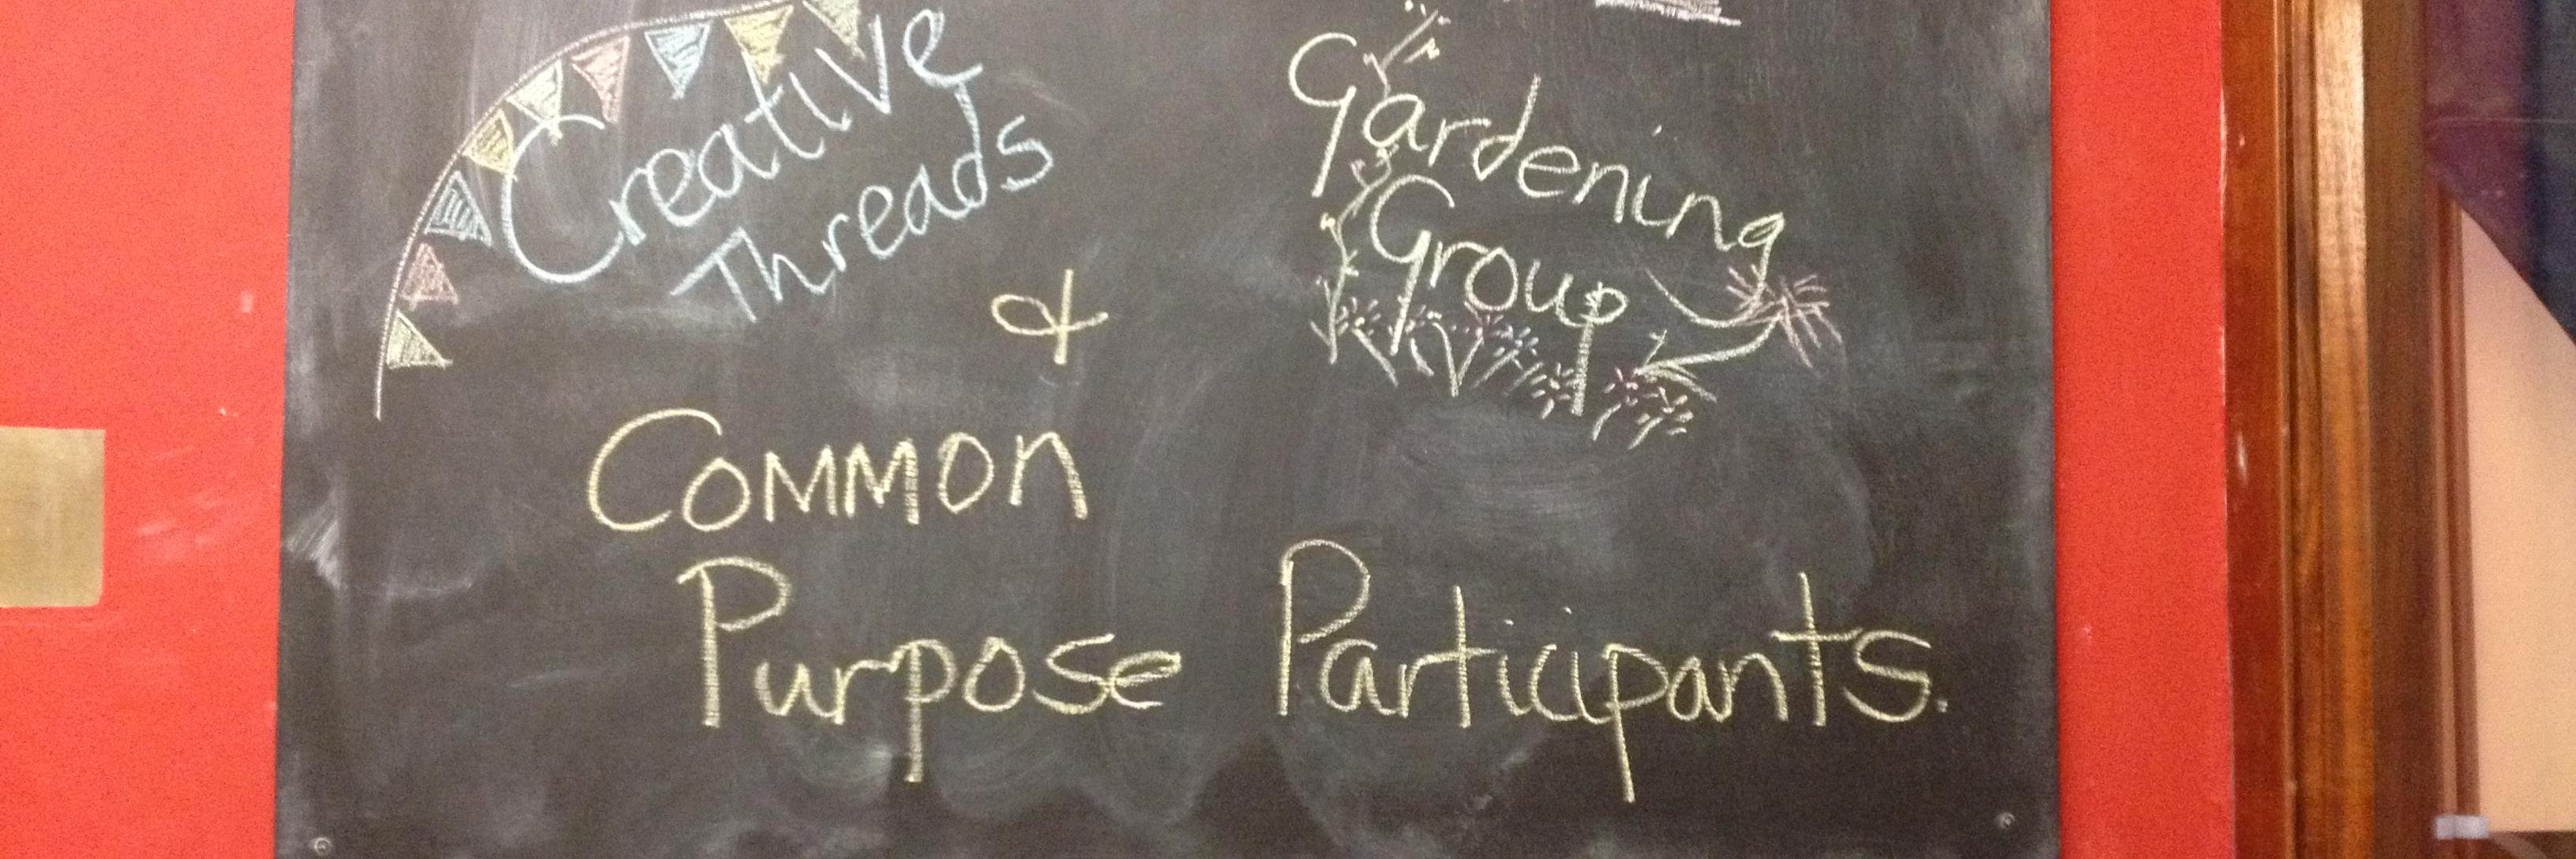 Creative
Threads
Gardening
Group
&
Common
Purpose Participants.